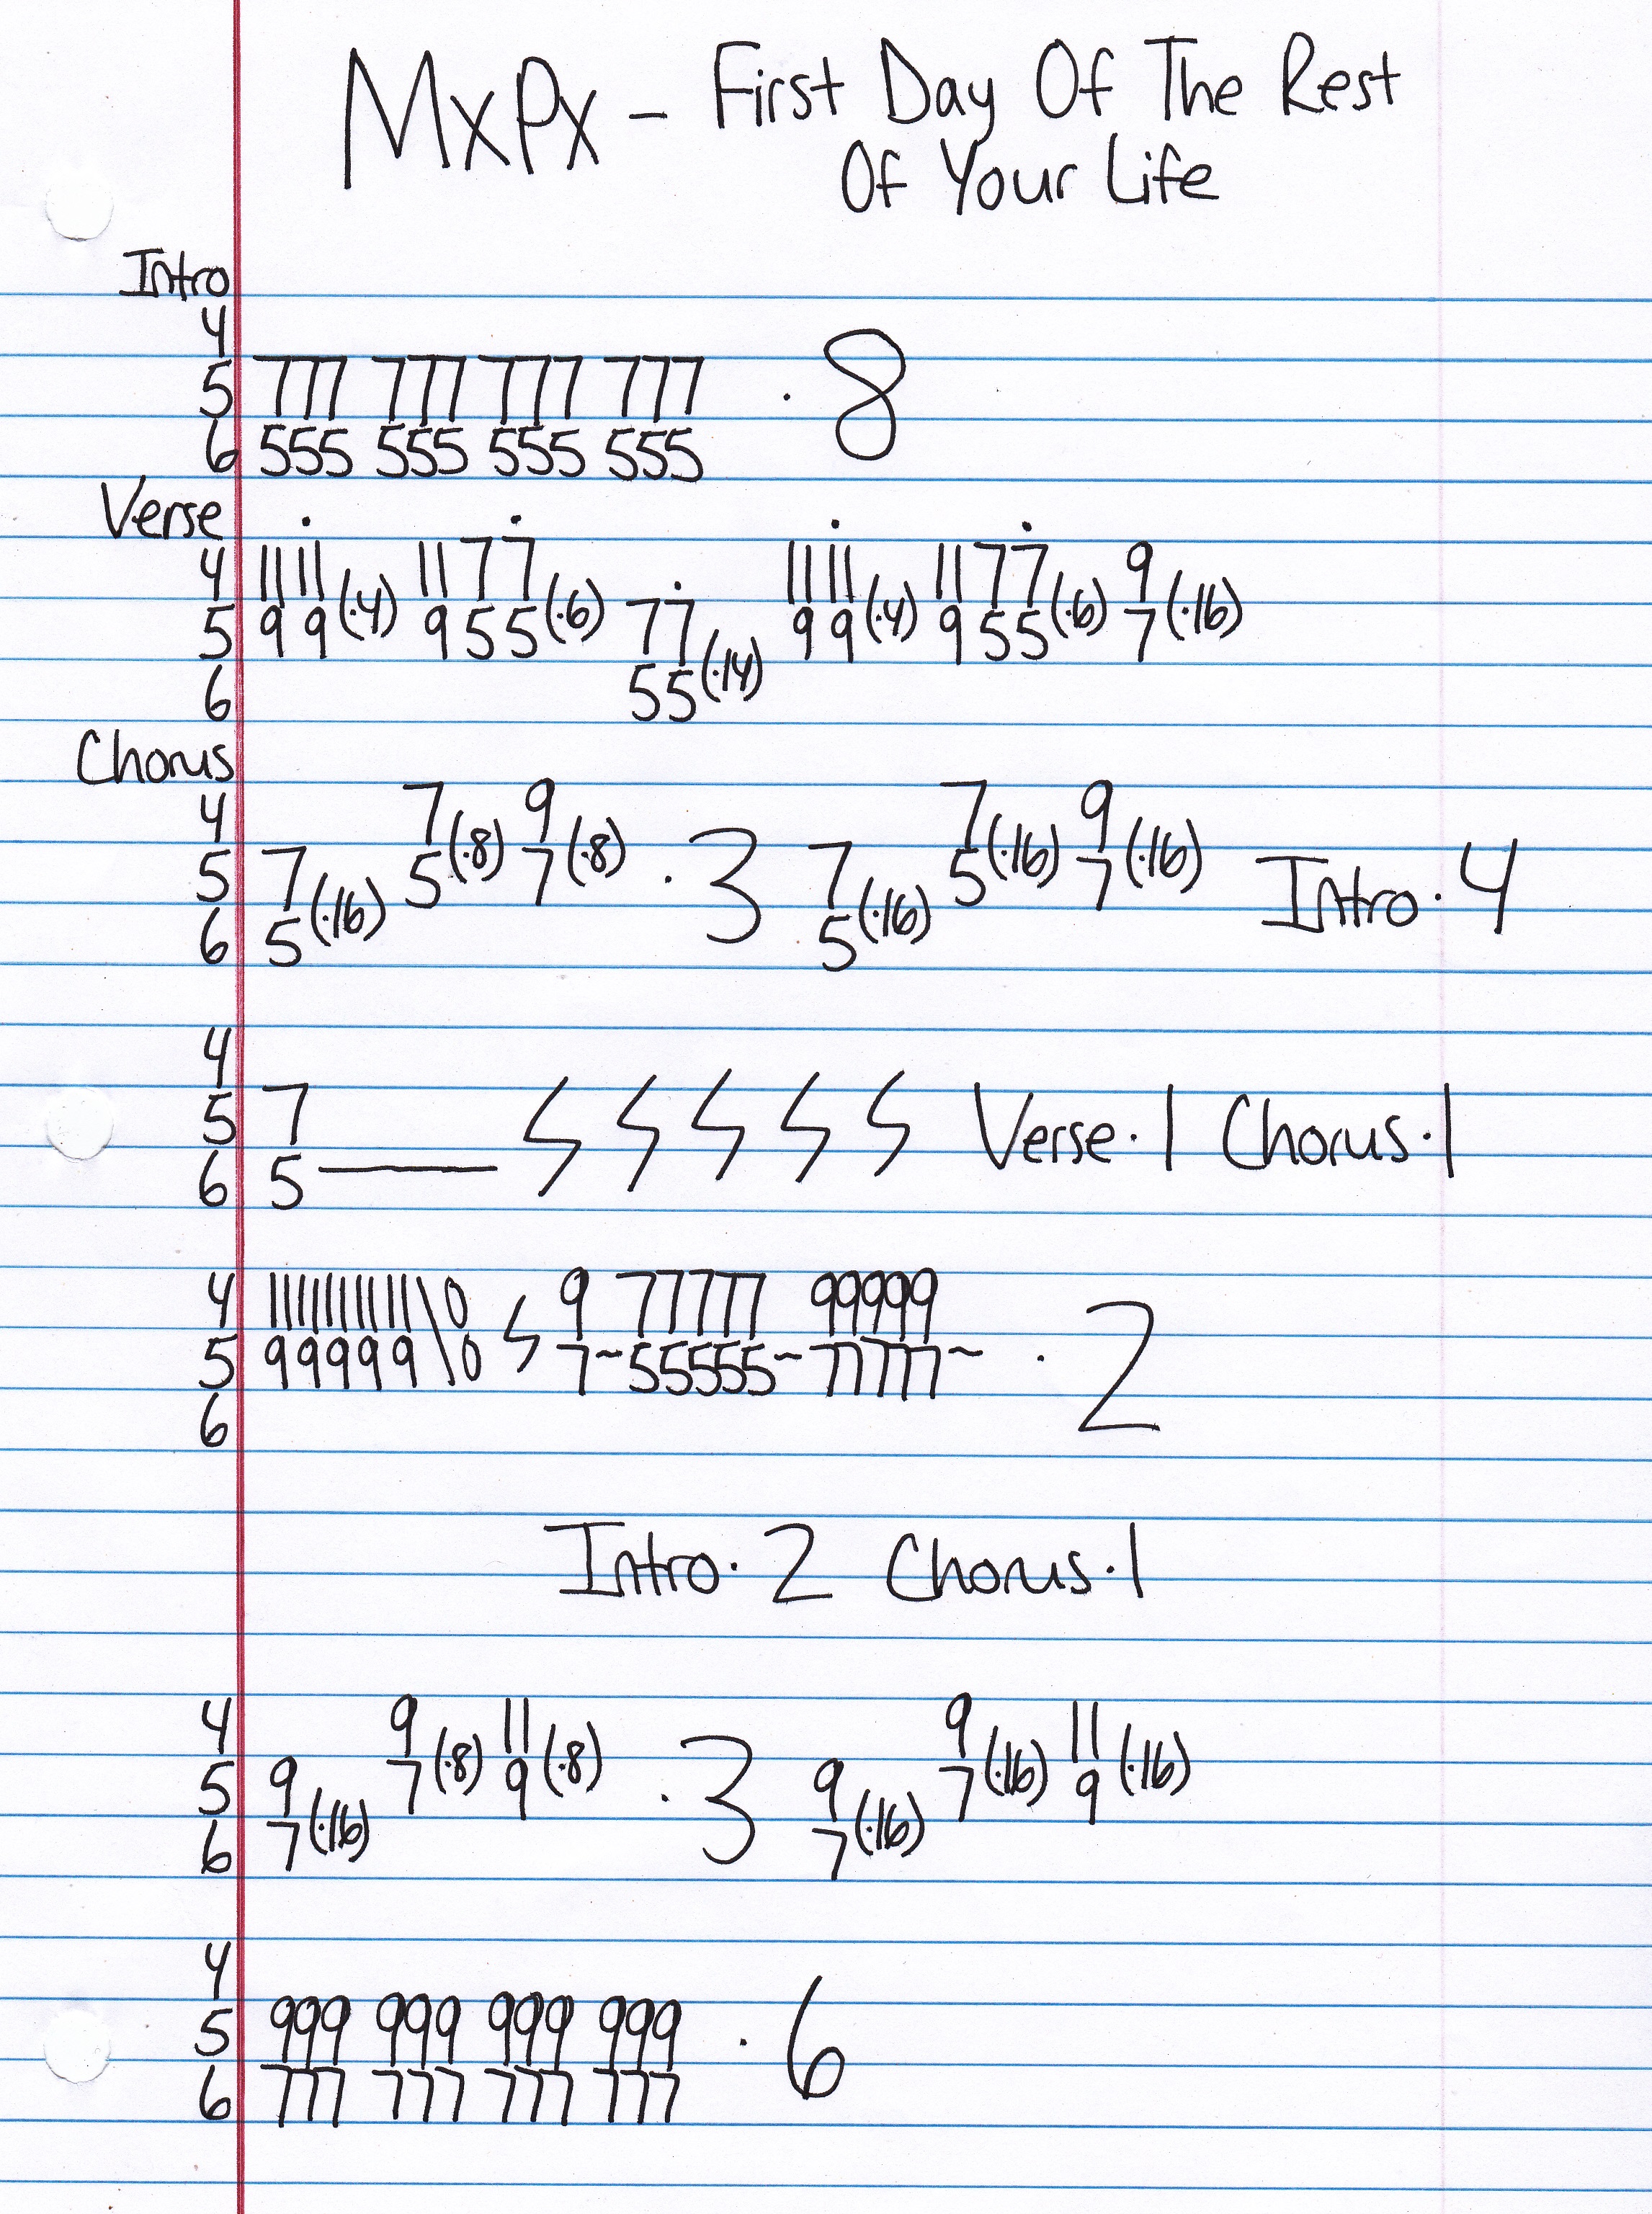 MxPx - First Day Of The Rest
Of Your Life
Intro
4
5 777 777 777 777 · 8
6 555 555 555 555
Verse · · · ·
4 11 11 11 7 7 11 11 11 7 7 9
5 9 9 (·4) 9 5 5 (·6) 7 7 9 9 (·4) 9 5 5 (·6) 7 (·16)
6 5 5 (·14)
Chorus
4 7 9 7 9
5 7 5 (·8) 7 (·8) · 3 7 5 (·16) 7 (·16) Intro · 4
6 5 (·16) 5 (·16)
4
5 7 Verse · 1 Chorus · 1
6 5
4 11 11 11 11 11 \ 0 9 77777 99999
5 9 9 9 9 9 \ 0 7~55555~77777~ · 2
6
Intro · 2 Chorus · 1
4 9 11 9 11
5 9 7 (·8) 9 (·8) · 3 9 7 (·16) 9 (·16)
6 7 (·16) 7 (·16)
4
5 999 999 999 999 · 6
6 777 777 777 777